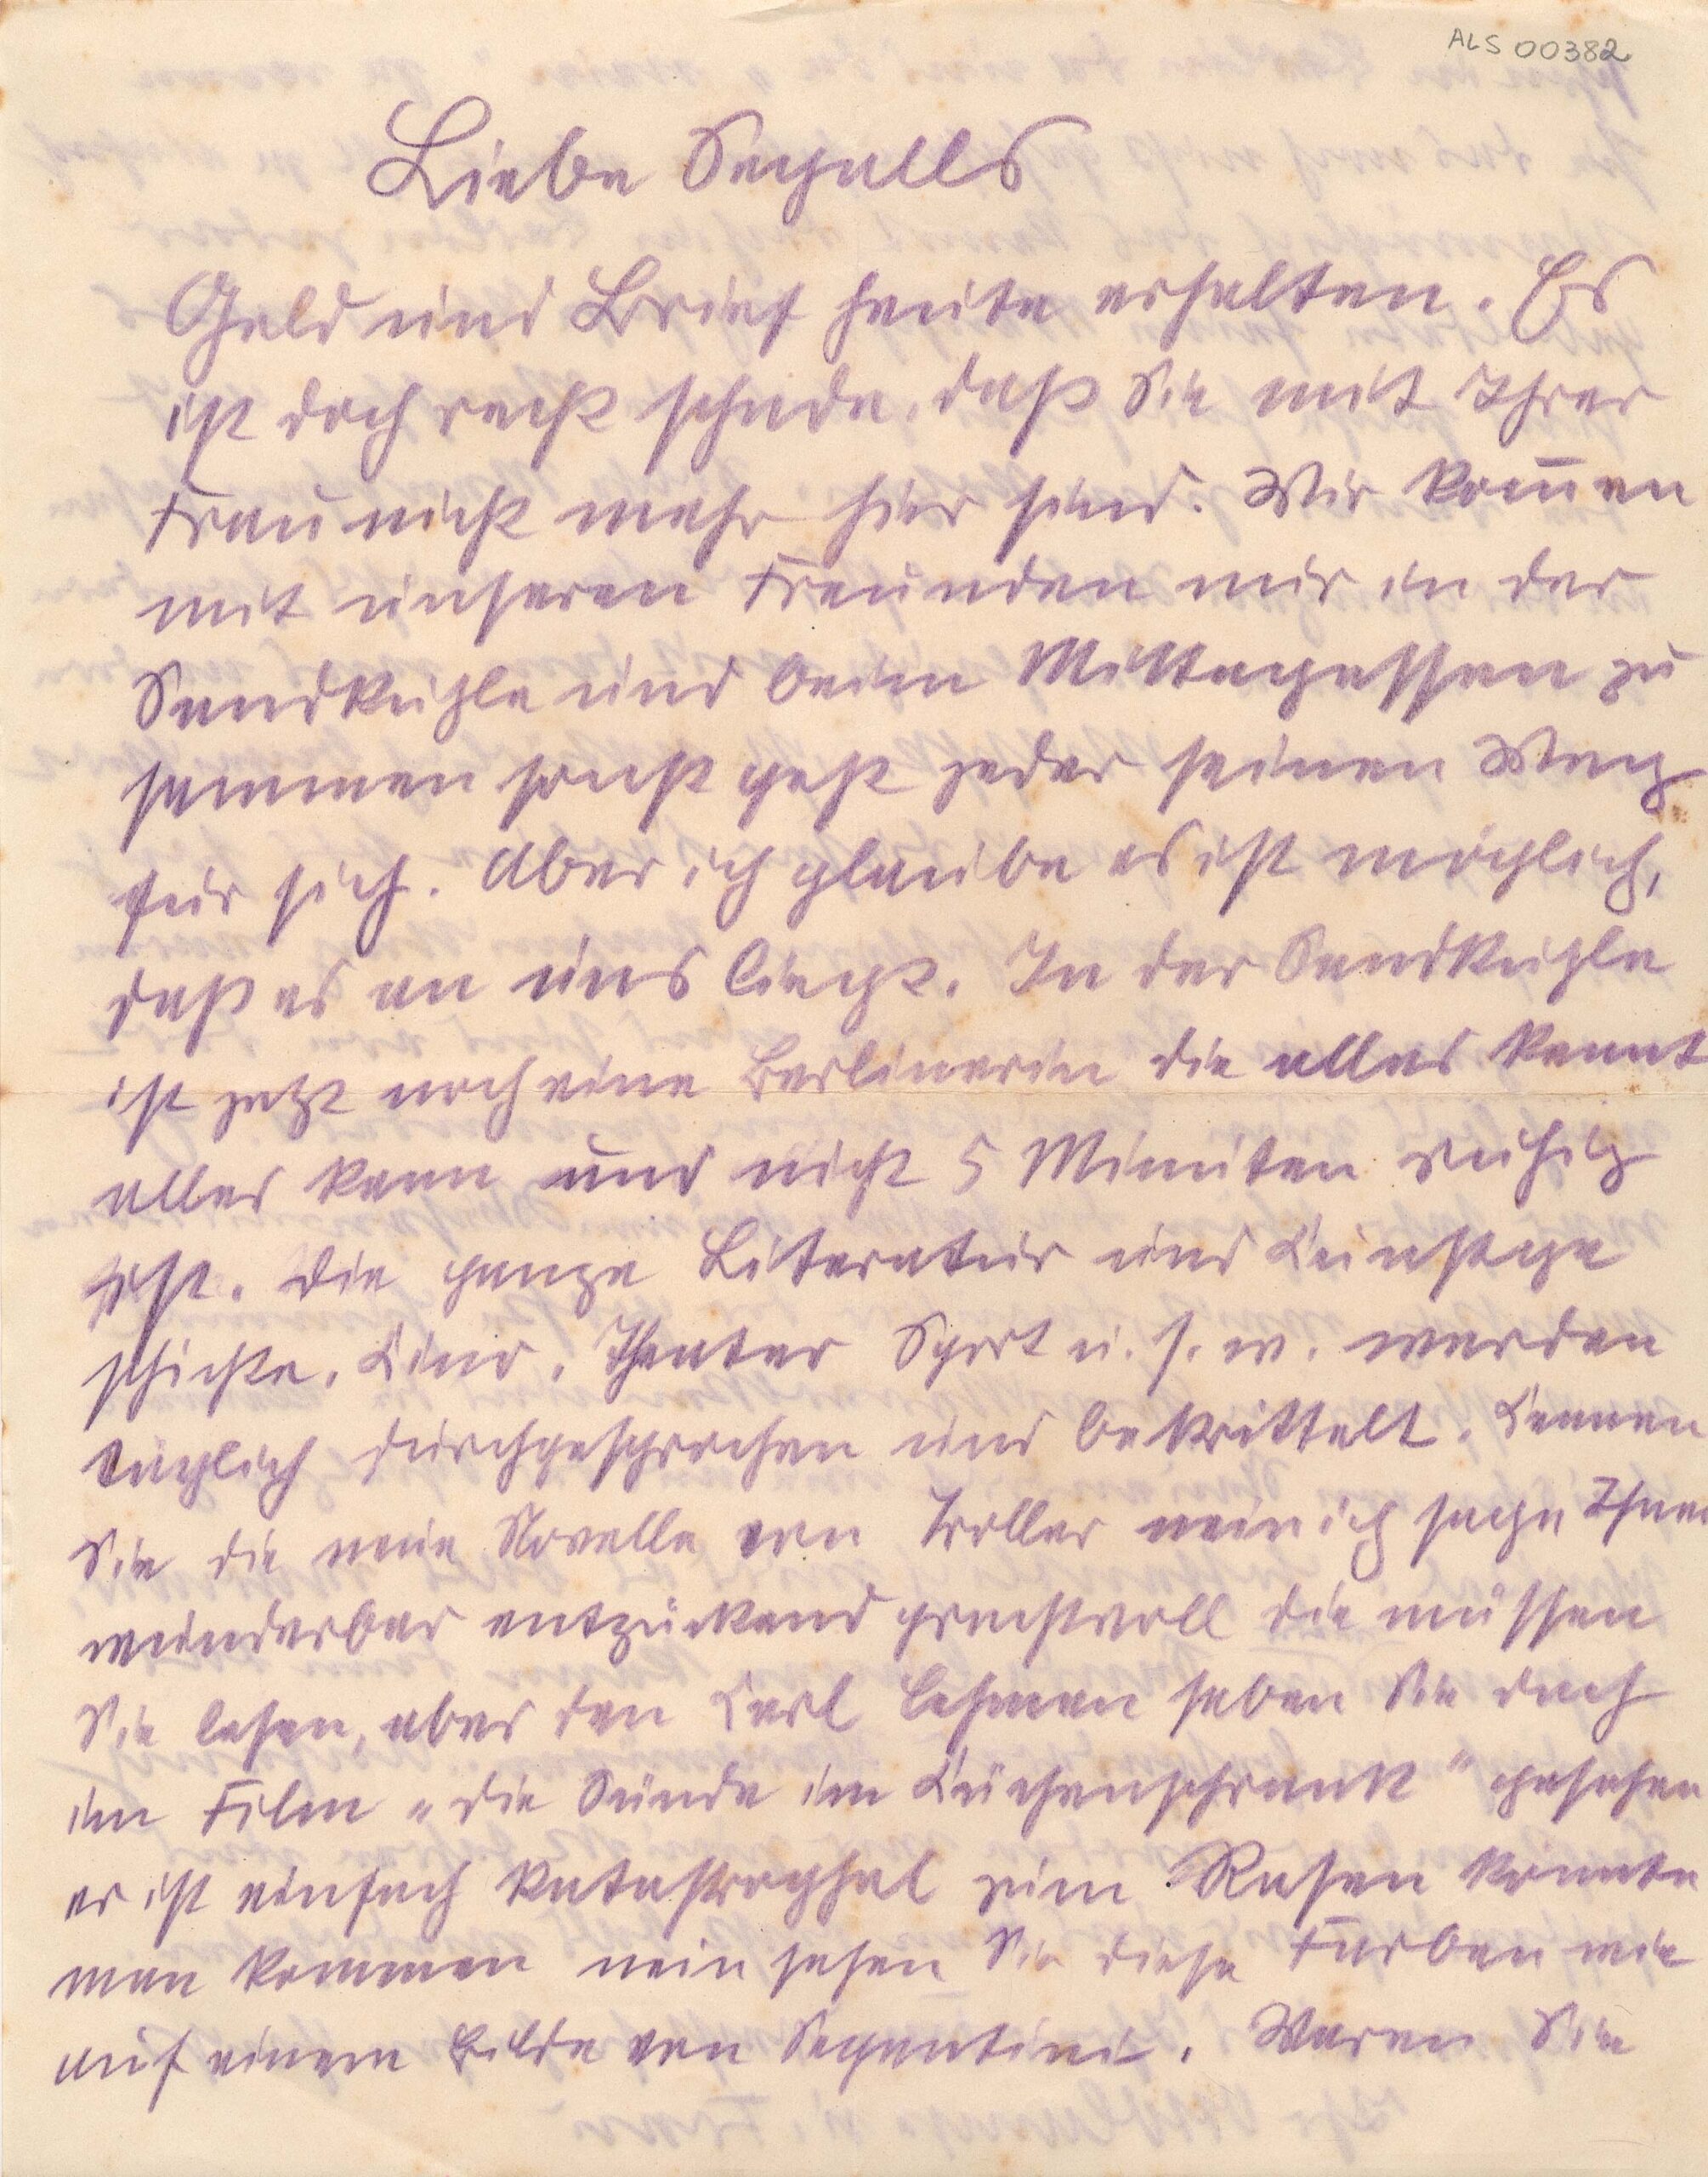 ALS 00382
Liebe Segalls
Geld und Brief heute erhalten. Es
ist doch recht schade, daß Sie mit Ihrer
Frau nicht mehr hier sind. Wir kom̄en
mit unseren Freunden nur in der
Sandkuhle und beim Mittagessen zu
sammen sonst geht jeder seinen Weg
für sich. Aber ich glaube es ist möglich,
daß es an uns liegt. In der Sandkuhle
ist jetzt noch eine Berlinerin die alles kennt
alles kann und nicht 5 Minuten ruhig
ist. Die ganze Literatur und Kunstge
schichte, Kino, Theater Sport u. s. w. werden
täglich durchgesprochen und bekrittelt. Kennen
Sie die neue Novelle von Troller nein ich sage Ihnen
wunderbar entzückend prachtvoll die müssen
Sie lesen, aber den Karl Lehman haben Sie doch
im Film „die Sünde im Küchenschrank" gesehen
er ist einfach katastrophal zum Rasen konnte
man kommen nein sehen Sie diese Farben wie
auf einem Bilde von Segantini. Waren Sie